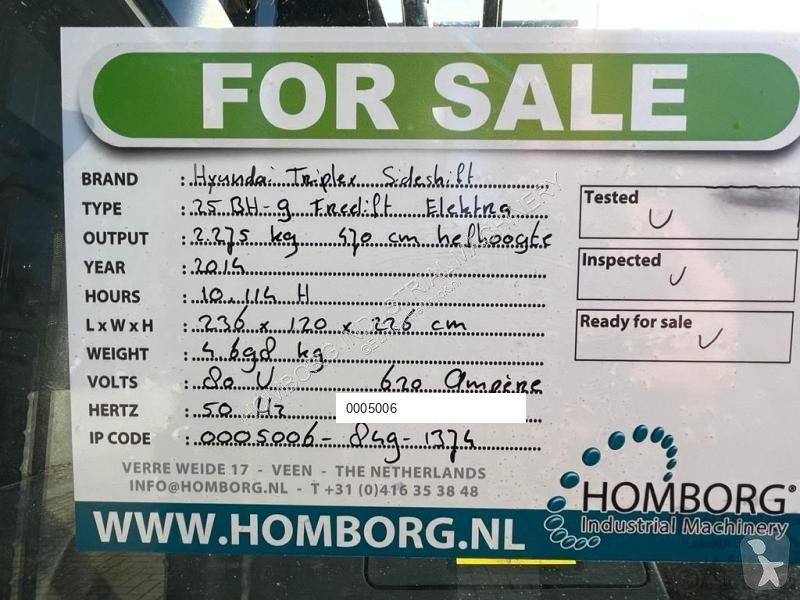 FOR SALE
BRAND : Hyundai Triplex Sideshift
TYPE : 25 BH-9 Freelift Elektra
OUTPUT : 2.275 kg 470 cm hefhoogte
YEAR : 2014
HOURS : 10.114 H
L x W x H : 236 x 120 x 226 cm
WEIGHT : 4.698 kg
VOLTS : 80 V 620 Ampère
HERTZ : 50 Hz 0005006
IP CODE : 0005006-849-1374
Tested
Inspected
Ready for sale
VERRE WEIDE 17 - VEEN - THE NETHERLANDS
INFO@HOMBORG.NL - T +31 (0)416 35 38 48
WWW.HOMBORG.NL
HOMBORG®
Industrial Machinery